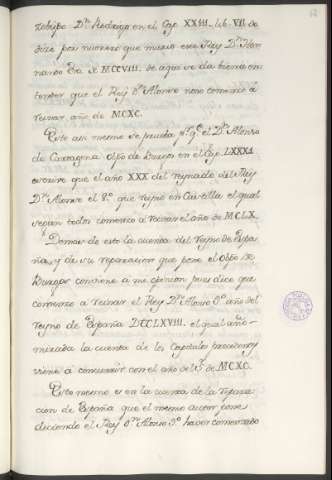 zobispo Dⁿ Rodrigo en el Cap XXIII. lib. VII do
dize por numeros que murio este Rey Dⁿ Her
nando Era de MCCVIII. de aqui se da bien a en
tender que el Rey Dⁿ Alonso nono comenzó à
reinar año de MCXC.
Esto asi mesmo se prueba pʳ qᵉ el Dⁿ Alonso
de Cartagena Obpo de Burgos en el Cap. LXXXI
escrive que el año XXX del reynado del Rey
Dⁿ Alonso el 8º que reyno en Castilla el qual
segun todos comenzo a reinar el año de MCLX.
Demas de esto la cuenta del Reyno de Espa
ña, y de su reparacion que pone el Obpo de
Burgos conviene à mi opinion pues dice que
comenzo a reinar el Rey Dⁿ Alonso 9º año del
reyno de España DCCLXVIII. el qual año
mirada la cuenta de los Capitulos precedentes
viene à concurrir con el año del Sᵒʳ de MCXC.
Esto mesmo es en la cuenta de la repara
cion de España que el mesmo autor pone
diciendo el Rey Dⁿ Alonso 9º haver comenzado